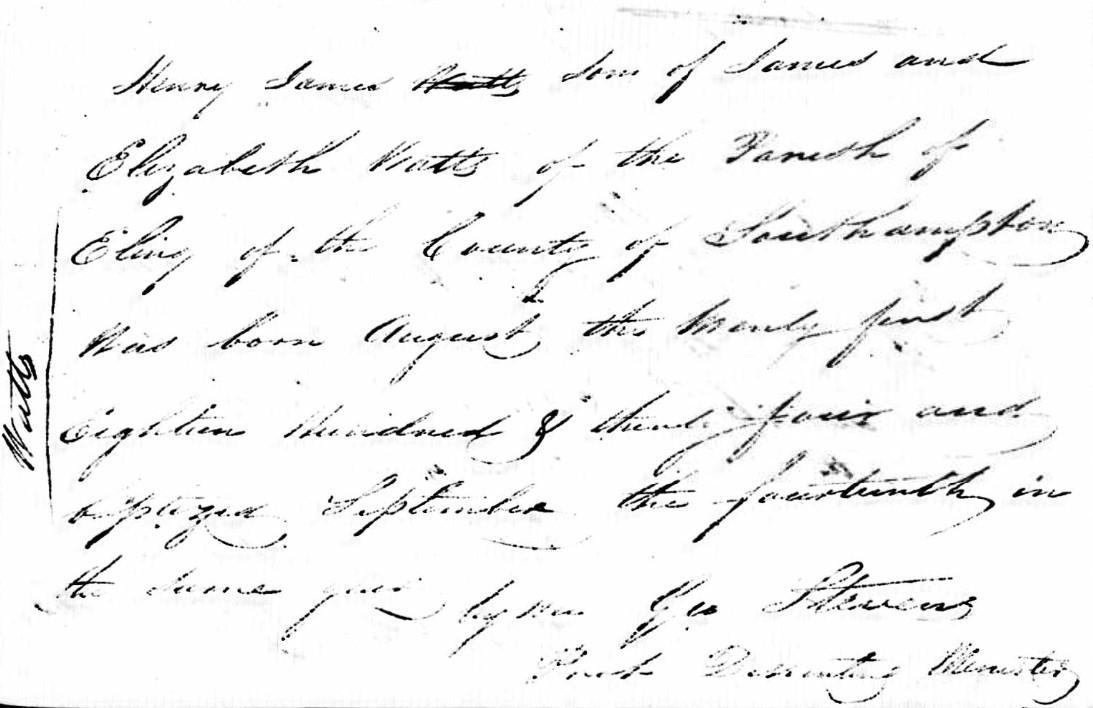 Henry James Watts Son of James and
Elizabeth Watts of the Parish of
Eling of the County of Southampton
Was born August the twenty first
Eighteen Hundred & thirty four and
baptized September the fourteenth in
the same year by me Geo Stevens
Dissenting Minister
Watts